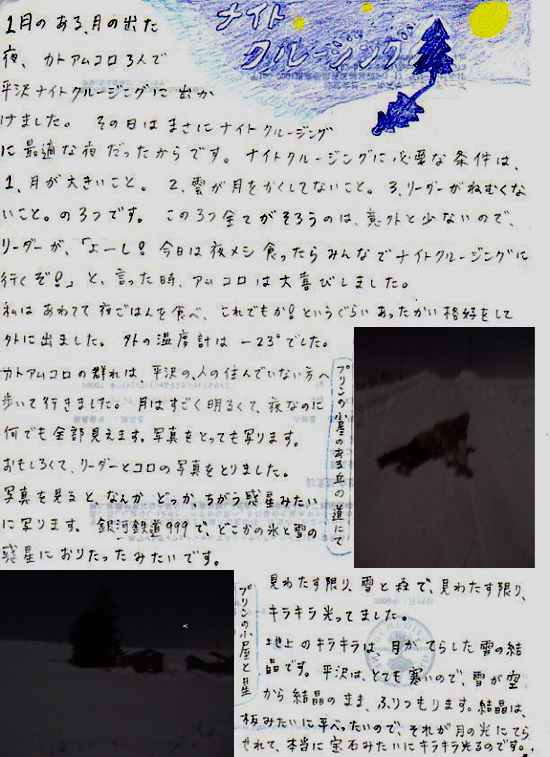 ナイト
クルージング
1月のある、月の出た
夜、カトアムコロ3人で
平沢ナイトクルージングに出か
けました。その日はまさにナイトクルージング
に最適な夜だったからです。ナイトクルージングに必要な条件は、
1、月が大きいこと。2、雲が月をかくしてないこと。3、リーダーがねむくな
いこと。の3つです。この3つ全てがそろうのは、意外と少ないので、
リーダーが、「よーし!今日は夜メシ食ったらみんなでナイトクルージングに
行くぞ!」と、言った時、アムコロは大喜びしました。
私はあわてて夜ごはんを食べ、これでもか!というぐらいあったかい格好をして
外に出ました。外の温度計は-23°でした。
カトアムコロの群れは、平沢の、人の住んでいない方へ
歩いて行きました。月はすごく明るくて、夜なのに
何でも全部見えます。写真をとっても写ります。
おもしろくて、リーダーとコロの写真をとりました。
写真を見ると、なんかどっか、ちがう惑星みたい
に写ります。銀河鉄道999で、どこかの氷と雪の
惑星におりたったみたいです。
プリンの小屋のある丘の道にて
プリンの小屋と星
見わたす限り、雪と森で、見わたす限り、
キラキラ光ってました。
地上のキラキラは、月がてらした雪の結
晶です。平沢は、とても寒いので、雪が空
から結晶のまま、ふりつもります。結晶は、
板みたいに平べったいので、それが月の光にてら
されて、本当に宝石みたいにキラキラ光るのです。